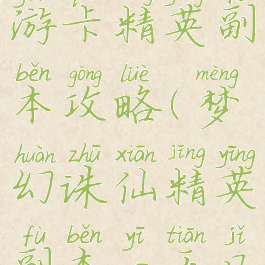 游卡精英副
běn gōng lüè mèng
本攻略(梦
huàn zhū xiān jīng yīng
幻诛仙精英
fù běn yī tiān jǐ
副本一天几